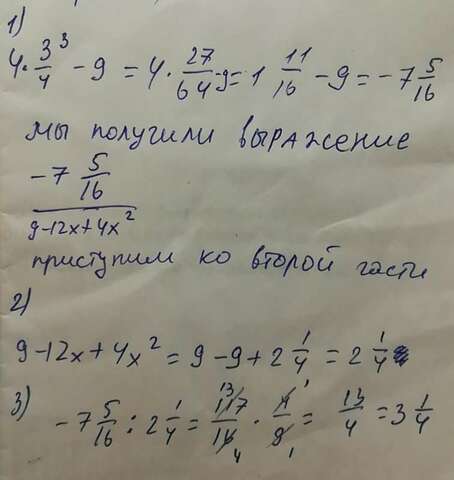 1)
4·3/4³ - 9 = 4·27/64 - 9 = 1 11/16 - 9 = -7 5/16
мы получили выражение
-7 5/16
9-12x+4x²
приступим ко второй части
2)
9-12x+4x² = 9-9+2 1/4 = 2 1/4
3)
-7 5/16 : 2 1/4 = 117/16 · 4/9 = 13/4 = 3 1/4